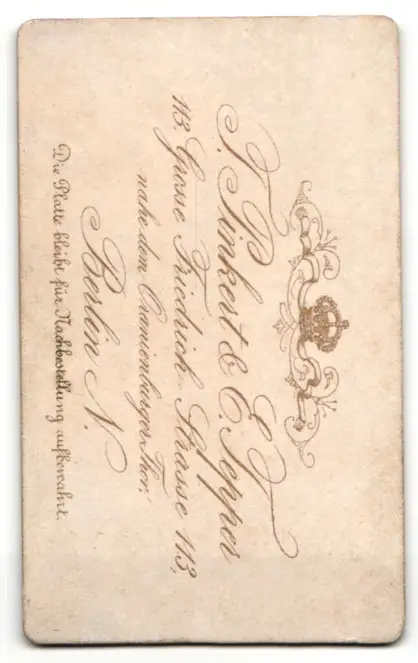 F. Pinkert & E. Tepper
113. Grosse Friedrich-Strasse 113.
nahe dem Oranienburger-Thor.
Berlin N.
Die Platte bleibt für Nachbestellung aufbewahrt.